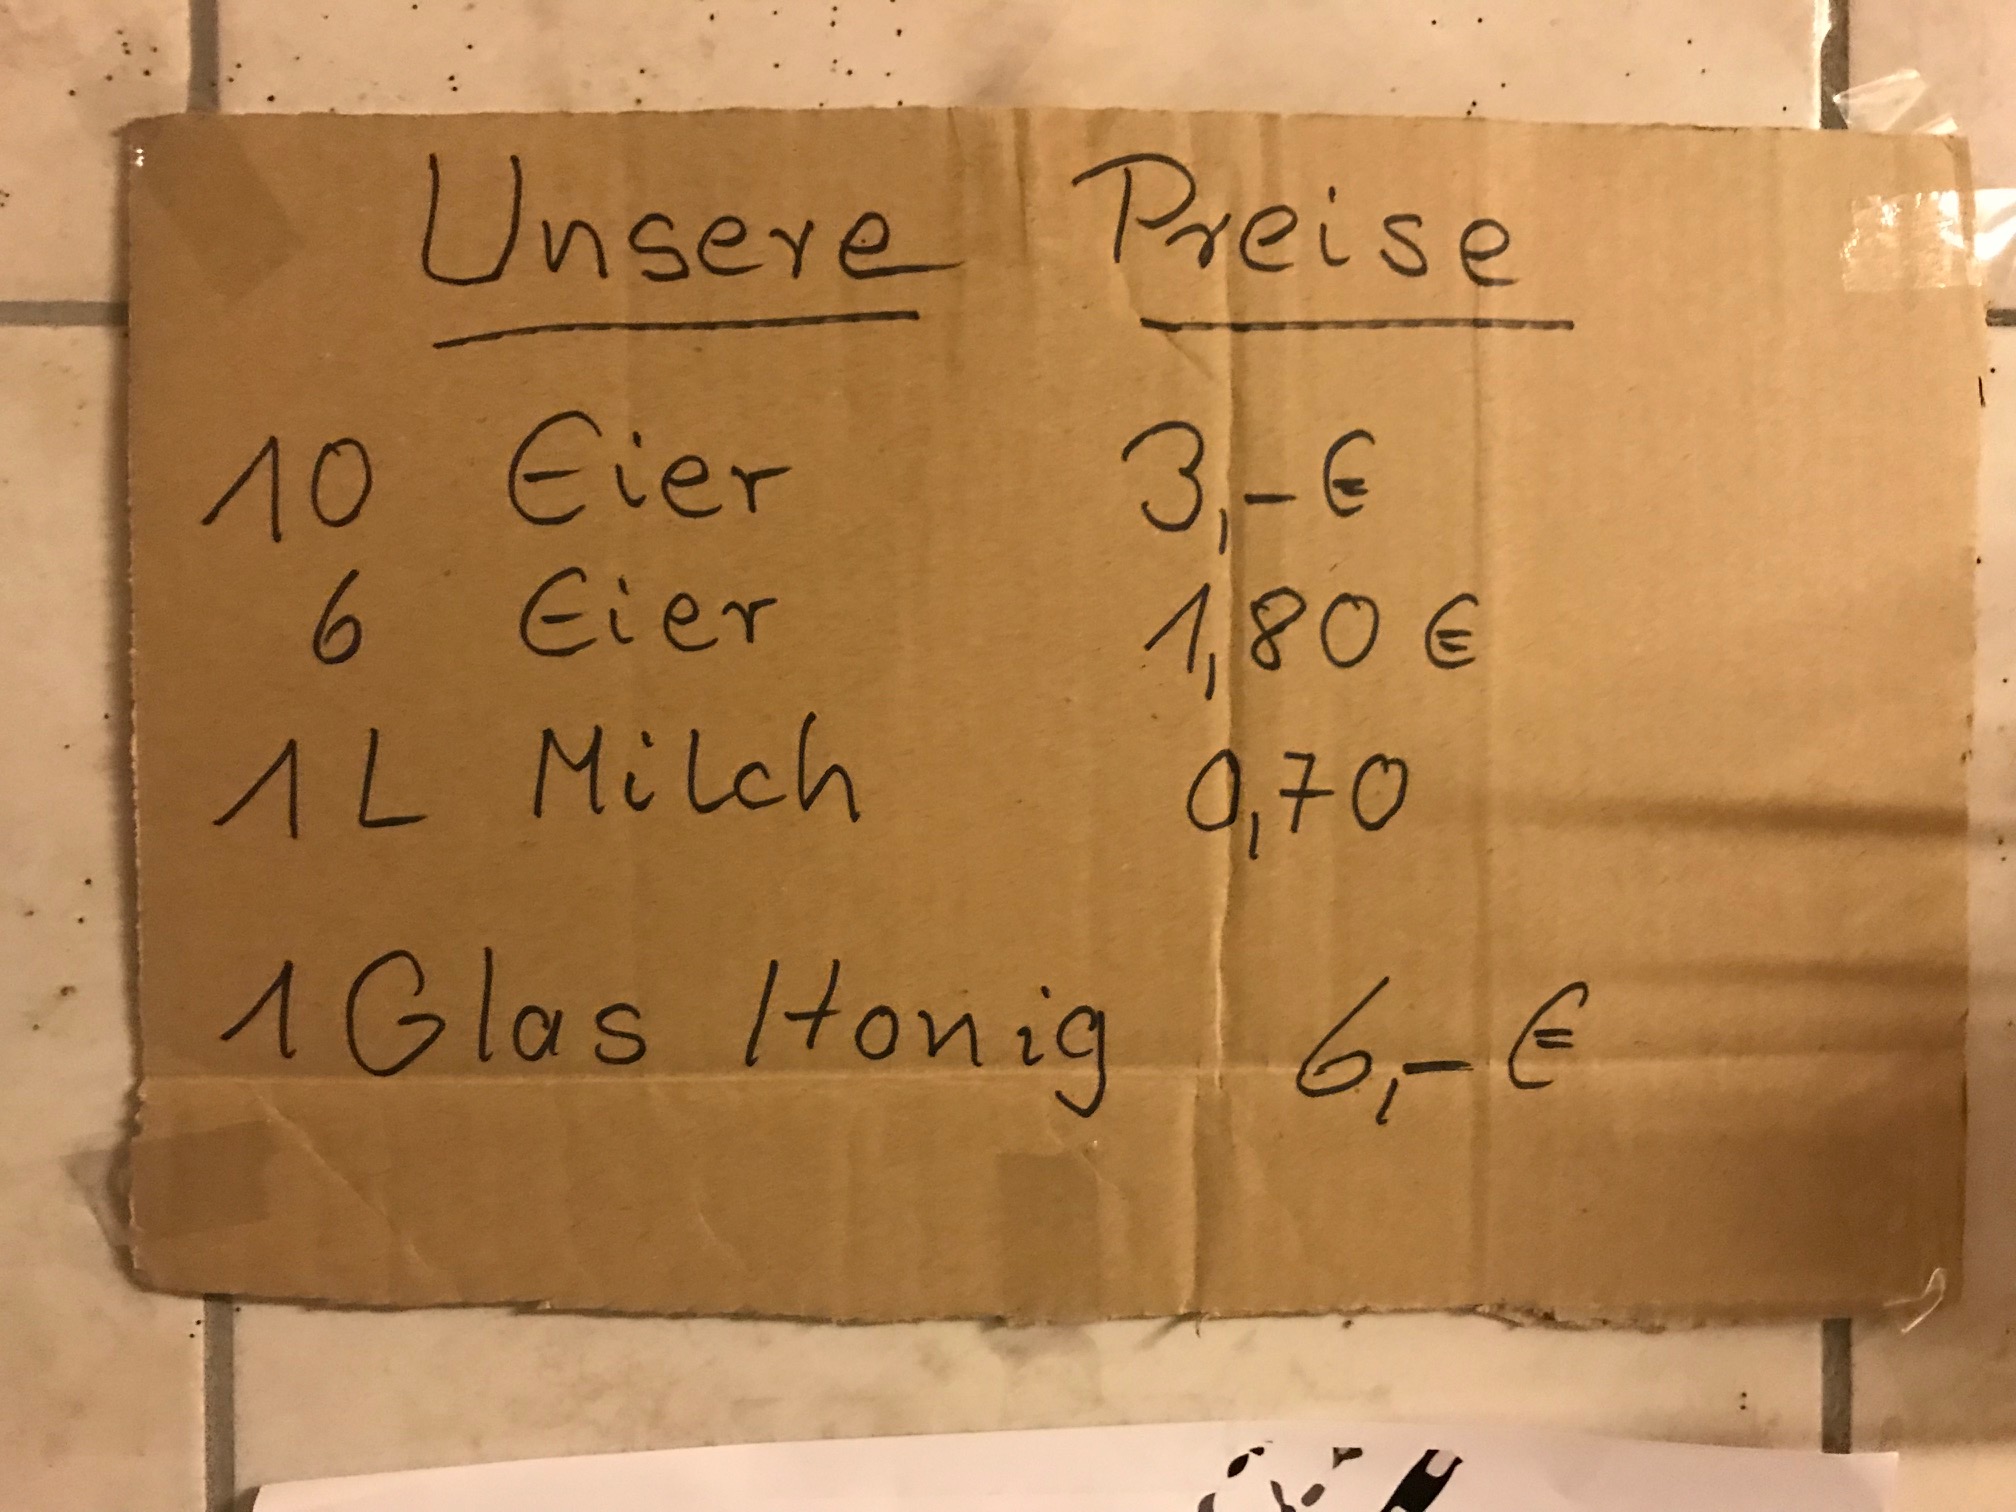 Unsere Preise
10 Eier 3,- €
6 Eier 1,80 €
1 L Milch 0,70
1 Glas Honig 6,- €